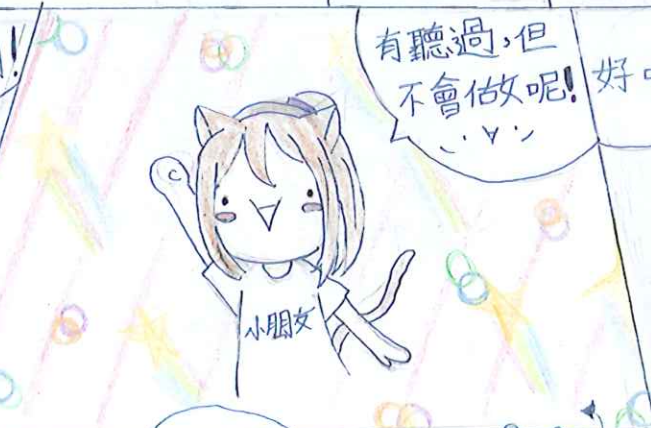 有聽過,但
不會做呢!
好
小朋友